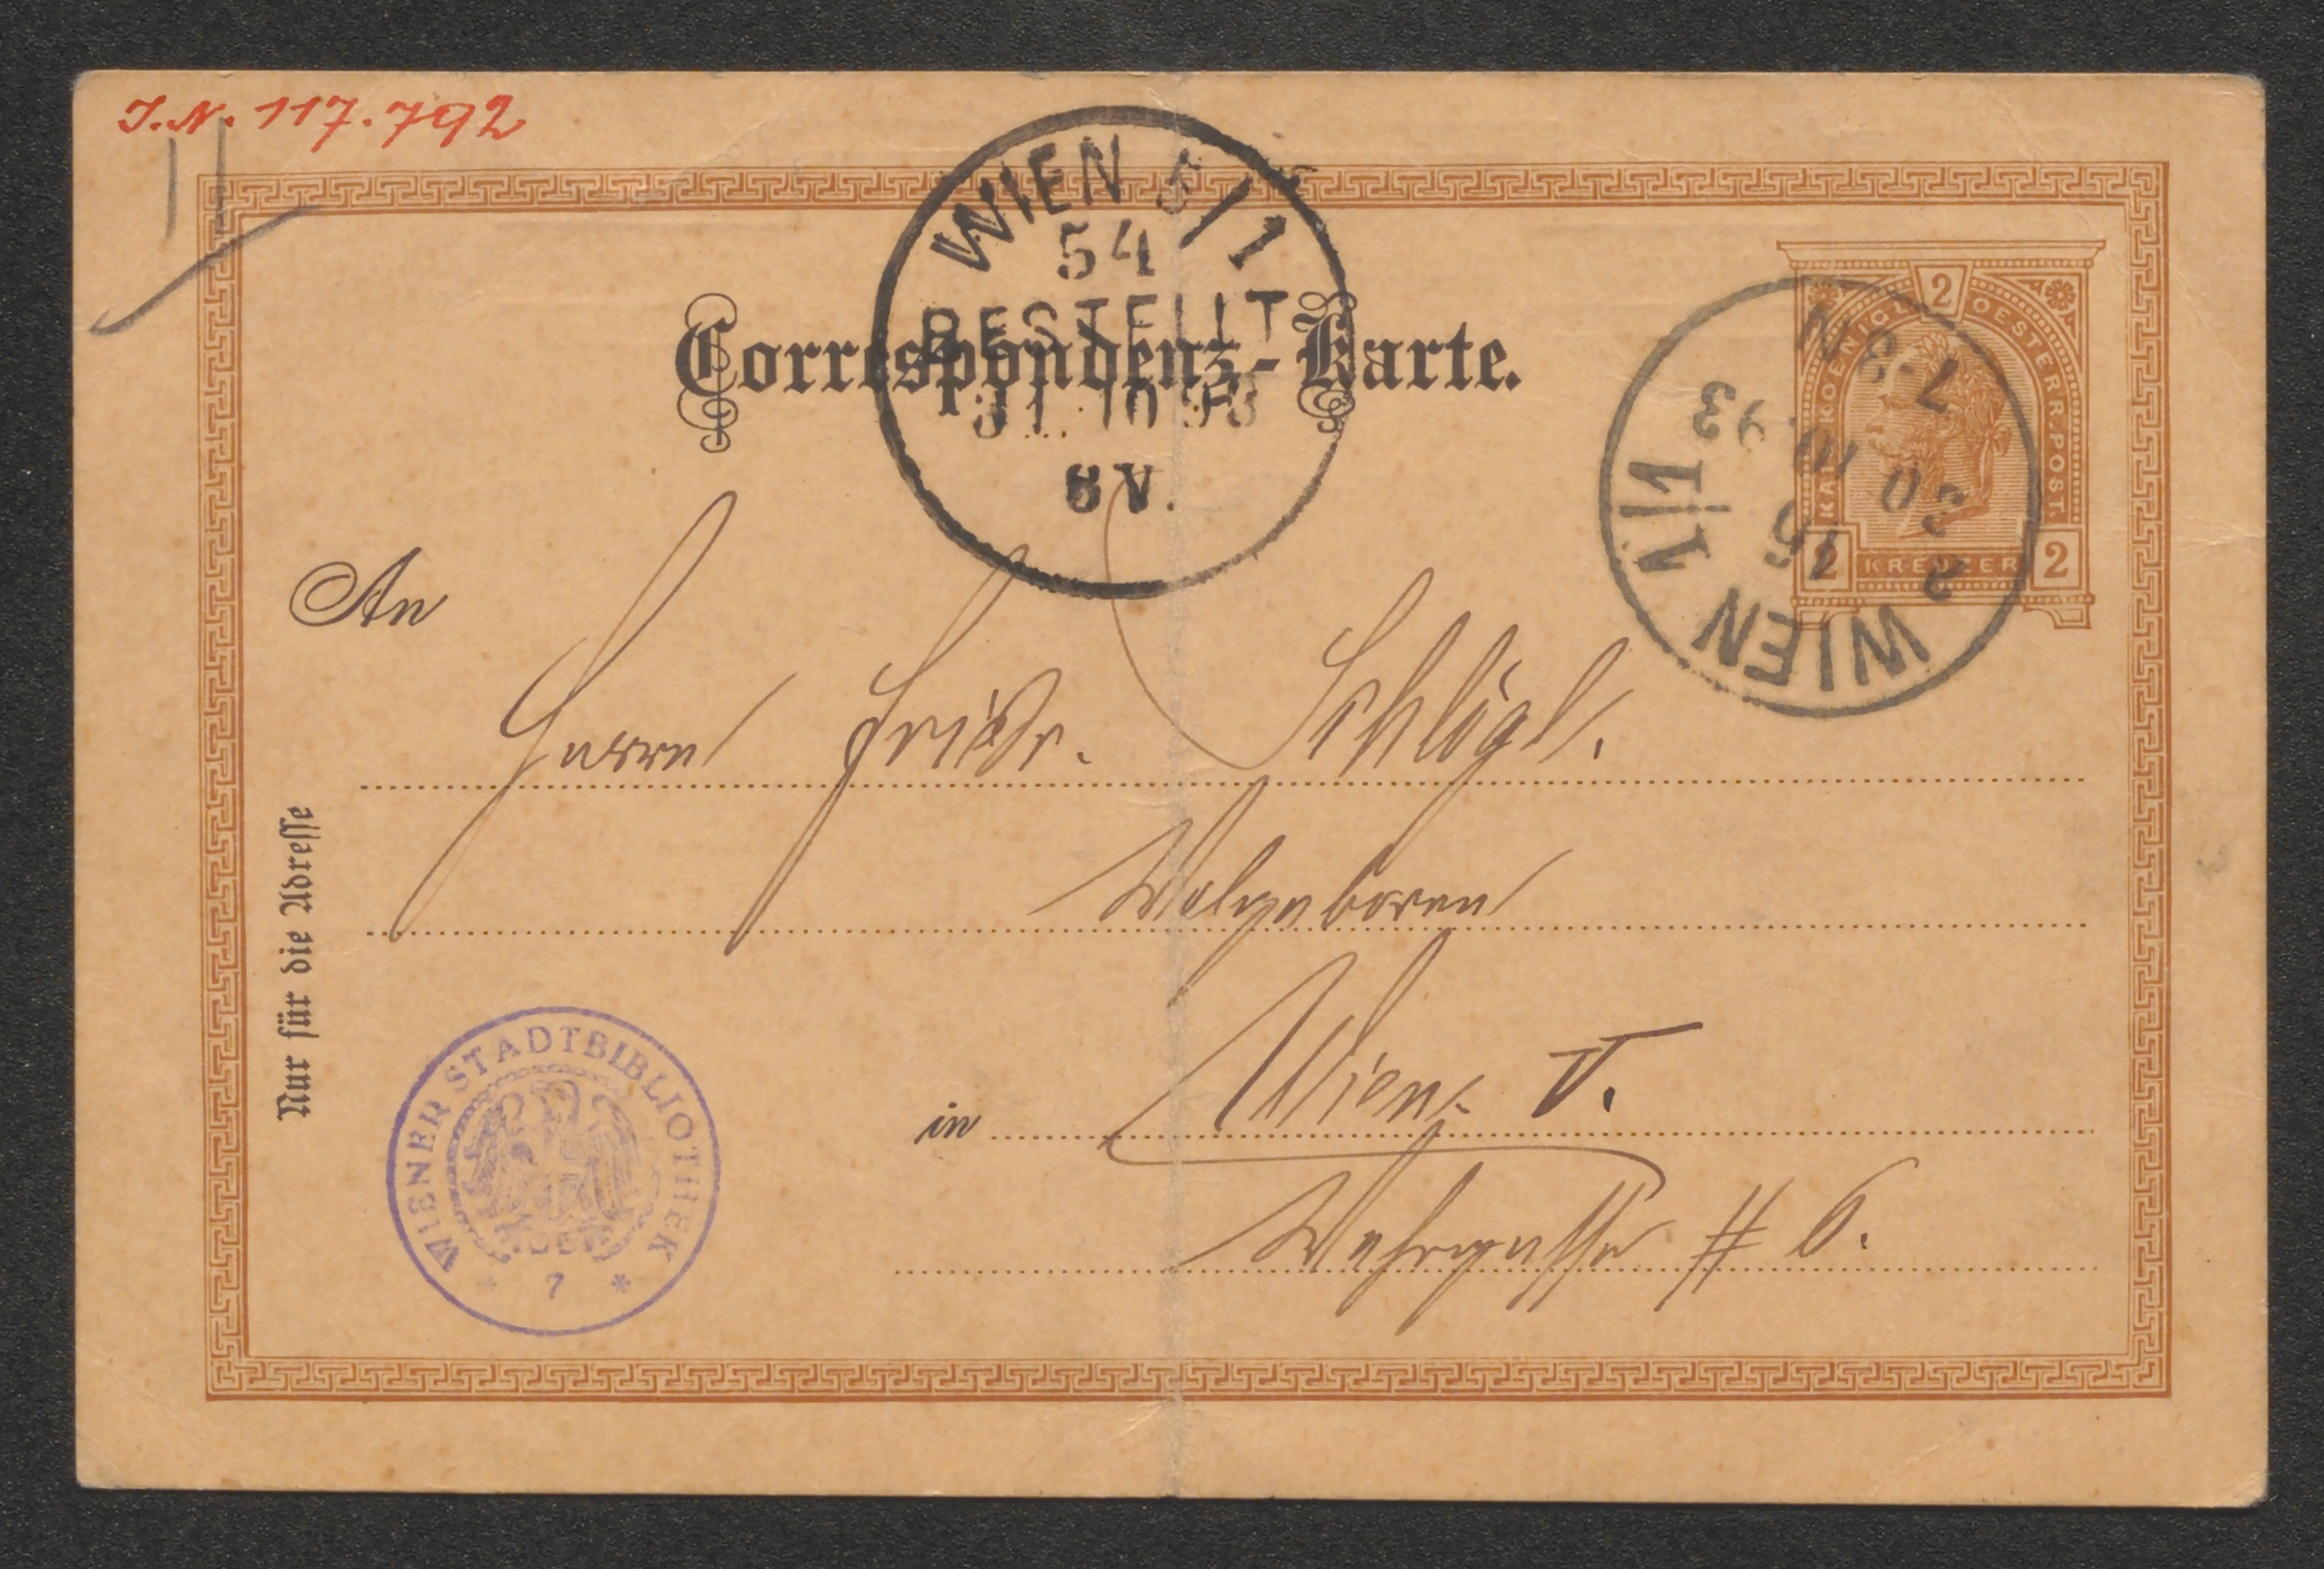 J.N. 117.792
11
WIEN 5/1
54
BESTELLT
31.10 93
8 V.
Correspondenz-Karte.
2
KAIS. KOENIGL. OESTERR. POST.
2 KREUZER 2
WIEN 1/1
15
2
30.10.93
7-8N
An
Herrn Friedr. Schlögl.
Wolgeboren
in Wien, V.
Wehrgasse # 6.
Nur für die Adresse
WIENER STADTBIBLIOTHEK
* 7 *